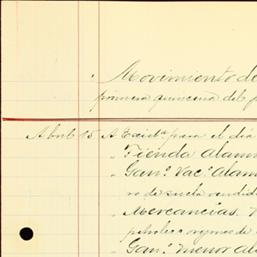 Movimiento de
primera quincena del p
Abril 15 A Caida para el dia
" Tienda alam
" Gano Vac. Alam
ro de suela vendid
" Mercancias. V
" Gano menor al